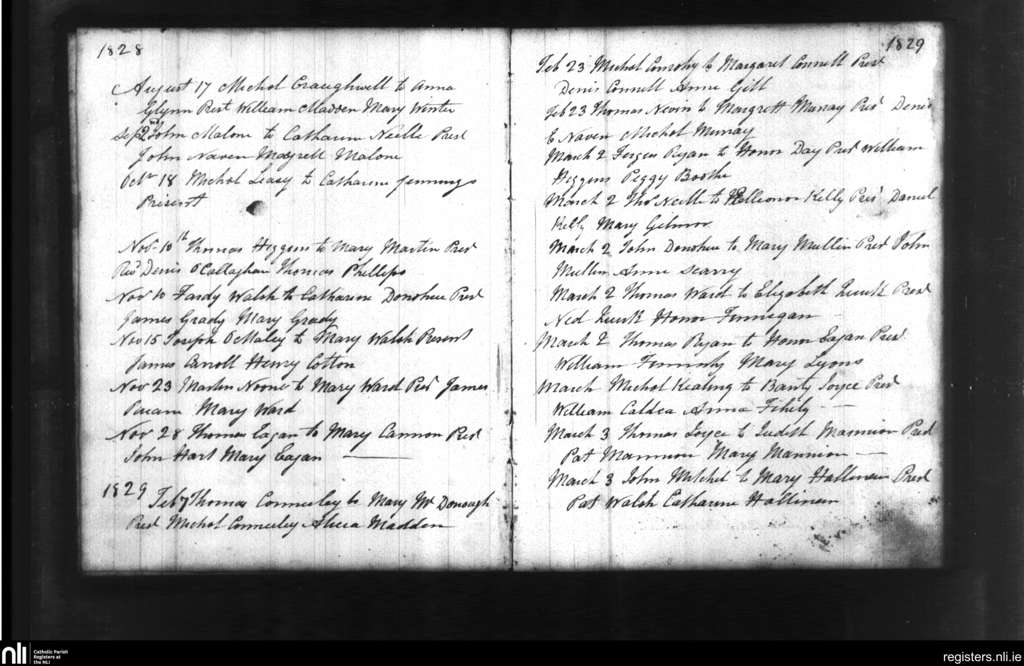 1828
August 17 Michol Craughwell to Anna
Glynn Prest William Madden Mary Winter
Sep 2nd John Malone to Catharine Neille Prest
John Naven Margrett Malone
Octr 18 Michol Leary to Catharine Jennings
Present
Nov. 10th Thomas Higgens to Mary Martin Prest
Revd Denis O'Callaghan Thomas Phillips
Nov 10 Fardy Walsh to Catharine Donohue Prest
James Grady Mary Grady
Nov 15 Joseph OMaley to Mary Walsh Present
James Carroll Henry Cotton
Nov 23 Martin Noone to Mary Ward Prest James
Mary Ward
Nov 28 Thomas Eagan to Mary Cannon Prest
John Hart Mary Eagan
1829 Feb 7 Thomas Conneeley to Mary Mc Donough
Prest Michol Conneeley Alicia Madden
1829
Feb 23 Michol to Margaret Connell Prest
Denis Connell Anne Gill
Feb 23 Thomas Nevin to Margrett Murray Prest Denis
E Naven Michol Murray
March 2 Fergus Ryan to Honor Day Prest William
Higgens Peggy Boothe
March 2 Thos Neille to Elleonor Kelly Prest Daniel
Kelly Mary Gilmor
March 2 John Donohue to Mary Mullin Prest John
Mullin Anne Scarry
March 2 Thomas Ward to Elizabeth Quirk Prest
Ned Quirk Honor Finnegan
March 2 Thomas Ryan to Honor Eagan Prest
William Mary Lyons
March Michol Keating to Joyce Prest
William Caldea Anna Fihily
March 3 Thomas Joyce to Judith Mannion Prest
Pat Mannion Mary Mannion
March 3 John Mitchel to Mary Hallinan Prest
Pat Walsh Catharine Hallinan
nli Catholic Parish
Registers at
the NLI
registers.nli.ie